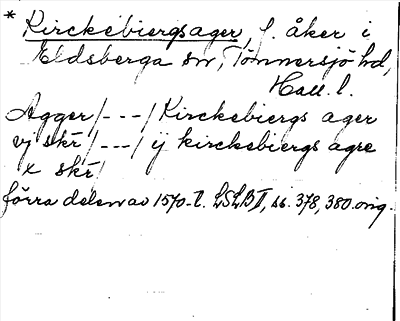 * Kirckebiergsager, f. åker i
Eldsberga sn, Tönnersjö hd,
Hall. l.
Agger/---/Kirckebiergs ager
vj skr/---/ij kirckebiergs agre
x skr/
förra delen av 1570-t. LSLB II, ss. 378, 380. orig.